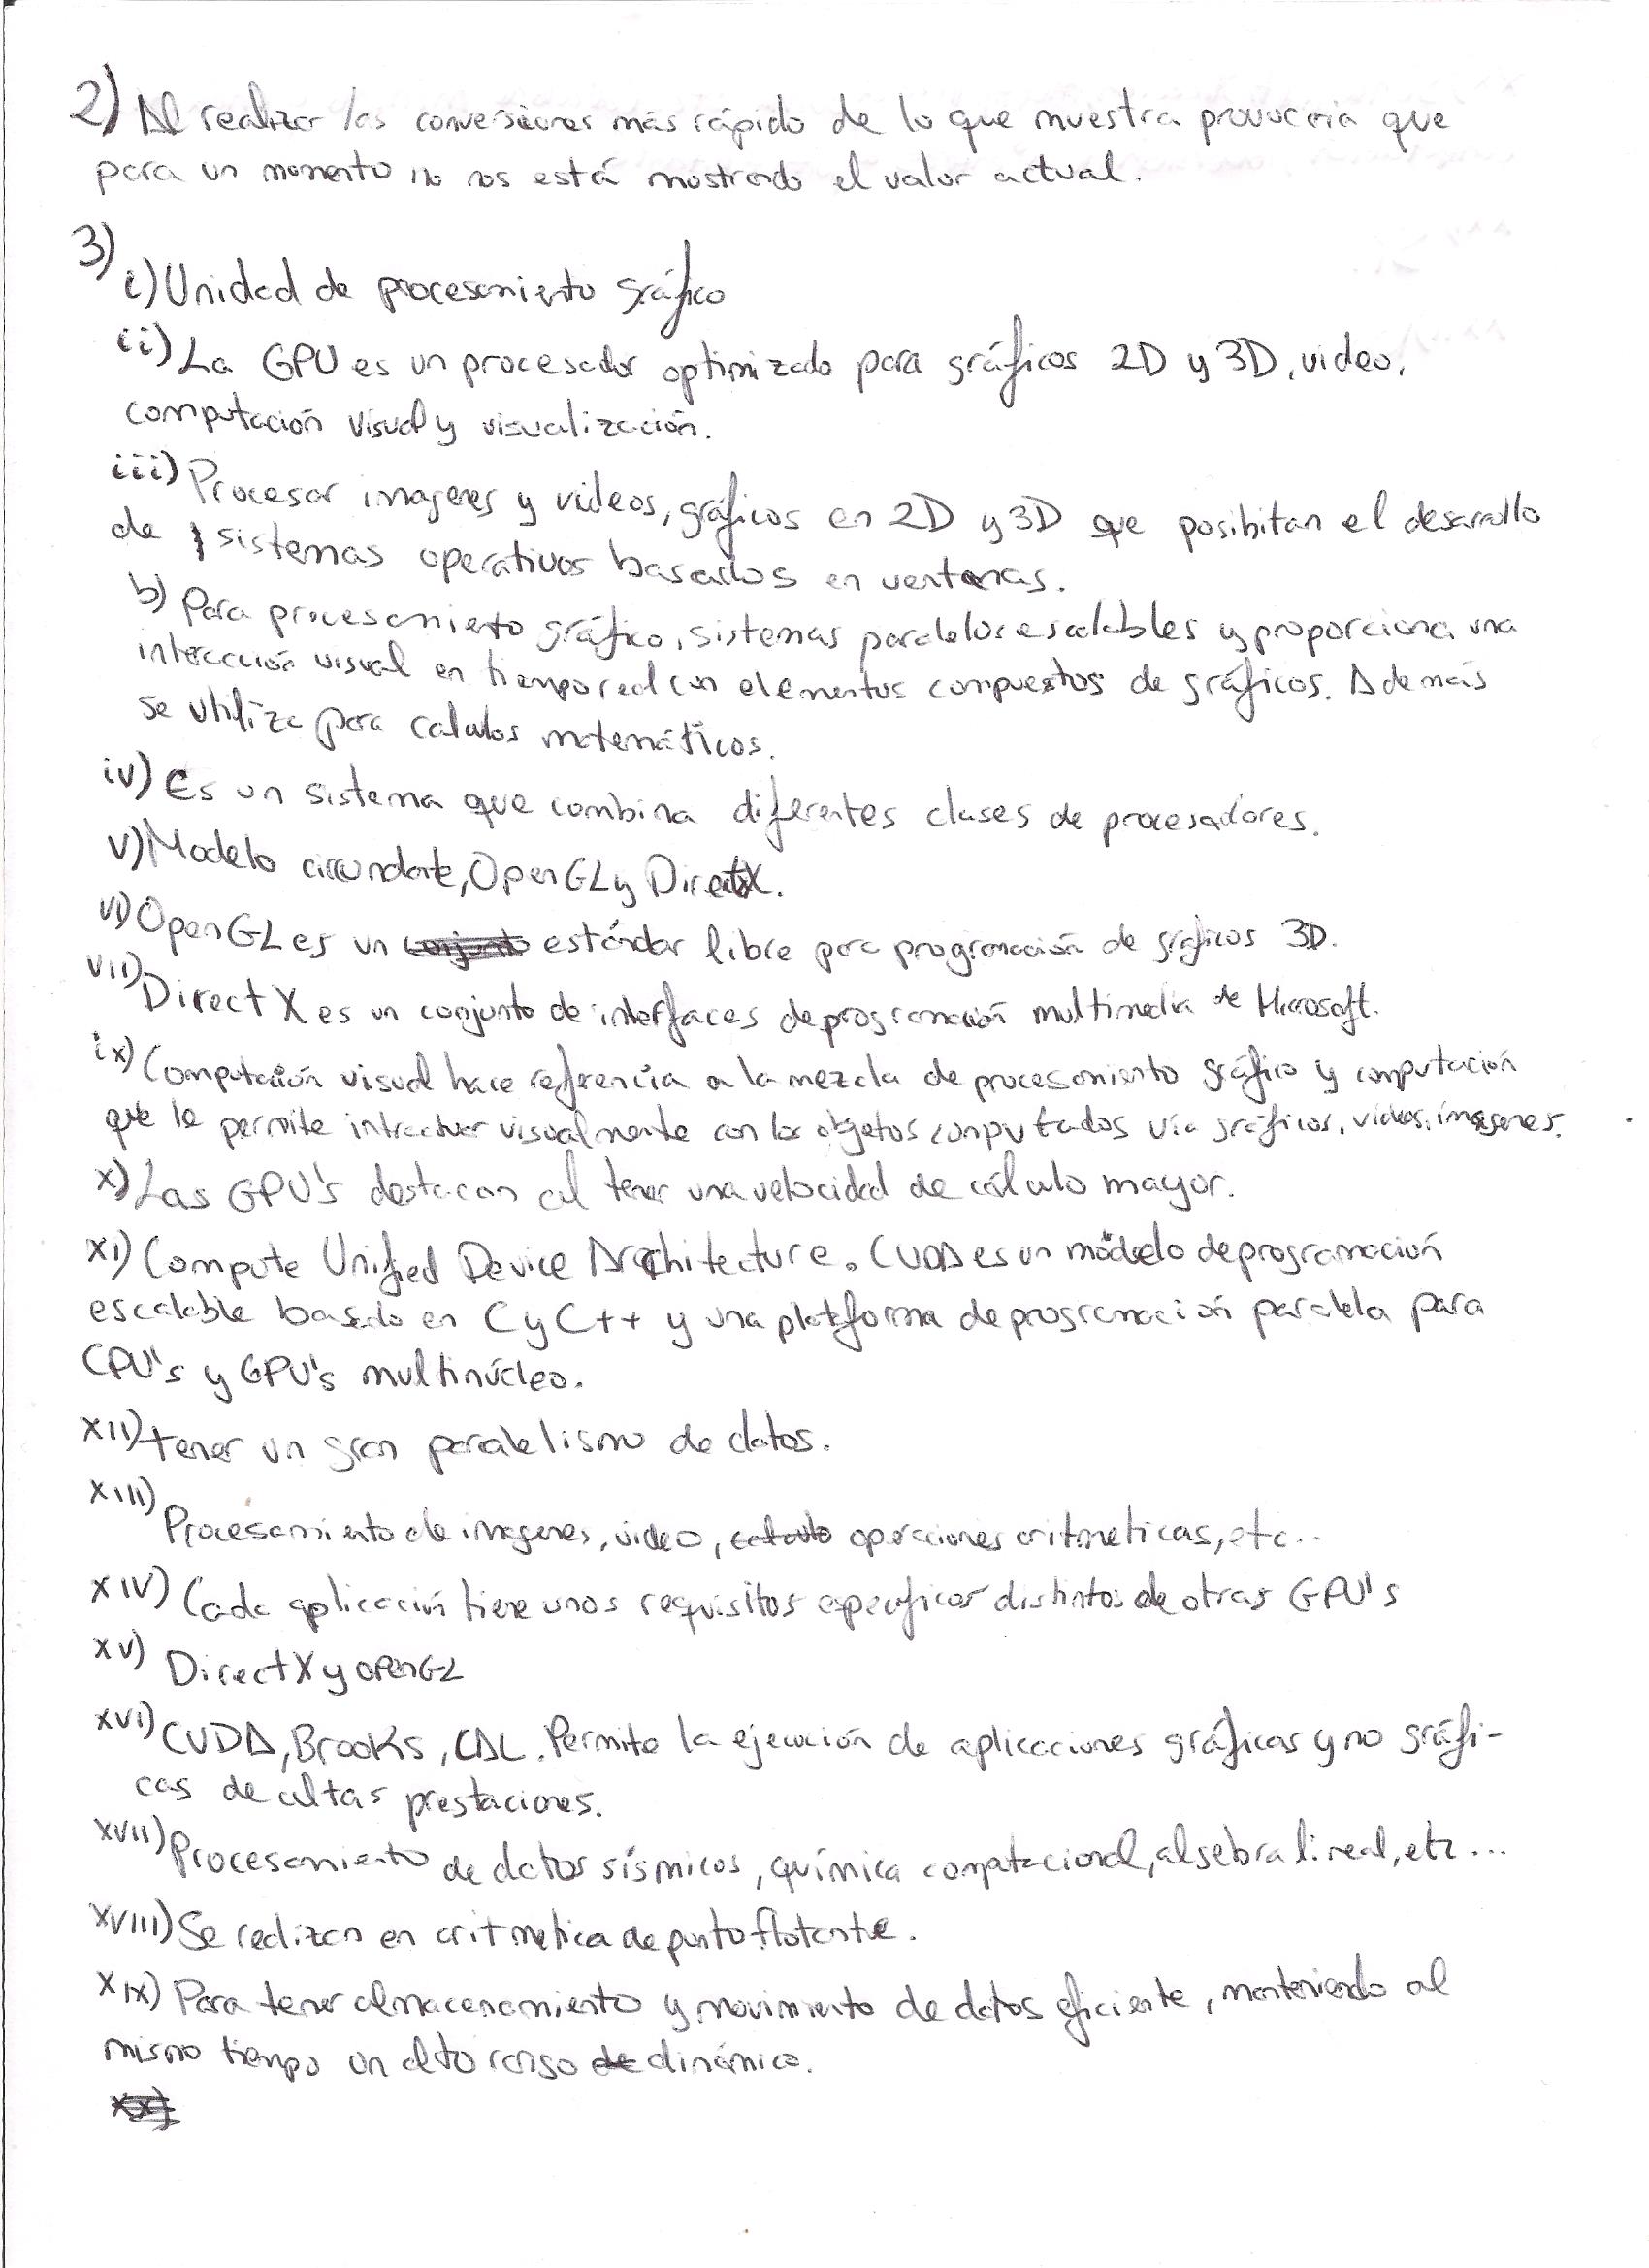 2) Al realizar las conversiones más rápido de lo que muestra provocaría que
para un momento no nos está mostrando el valor actual.
3)
i) Unidad de procesamiento gráfico
ii) La GPU es un procesador optimizado para gráficos 2D y 3D, video,
computación visual y visualización.
iii) Procesar imagenes y videos, gráficos en 2D y 3D que posibitan el desarollo
de sistemas operativos basados en ventanas.
b) Para procesamiento gráfico, sistemas paralelos escalables y proporciona una
interacción visual en tiempo real con elementos compuestos de gráficos. Además
se utiliza para calculos matemáticos.
iv) Es un sistema que combina diferentes clases de procesadores.
v) Modelo circundante, OpenGL y DirectX.
vi) OpenGL es un conjunto estándar libre para programación de gráficos 3D.
vii) DirectX es un conjunto de interfaces de programación multimedia de Microsoft.
ix) Computación visual hace referencia a la mezcla de procesamiento gráfico y computación
que le permite intractuar visualmente con los objetos computados vía gráficos, videos, imagenes.
x) Las GPU's destacan al tener una velocidad de cálculo mayor.
xi) Compute Unified Device Architecture. CUDA es un modelo de programación
escalable basado en C y C++ y una plataforma de programación paralela para
CPU's y GPU's multinúcleo.
xii) tener un gran paralelismo de datos.
xiii)
Procesamiento de imagenes, video, calculo operaciones aritmeticas, etc...
xiv) Cada aplicación tiene unos requisitos especificos distintos de otras GPU's
xv) DirectX y OPENGL
xvi) CUDA, Brooks, CAL. Permite la ejecución de aplicaciones gráficas y no gráfi-
cas de altas prestaciones.
xvii) Procesamiento de datos sísmicos, química computacional, algebra lineal, etc...
xviii) Se realizan en aritmetica de punto flotante.
xix) Para tener almacenamiento y movimiento de datos eficiente, manteniendo al
mismo tiempo un alto rango de dinámico.
xx)